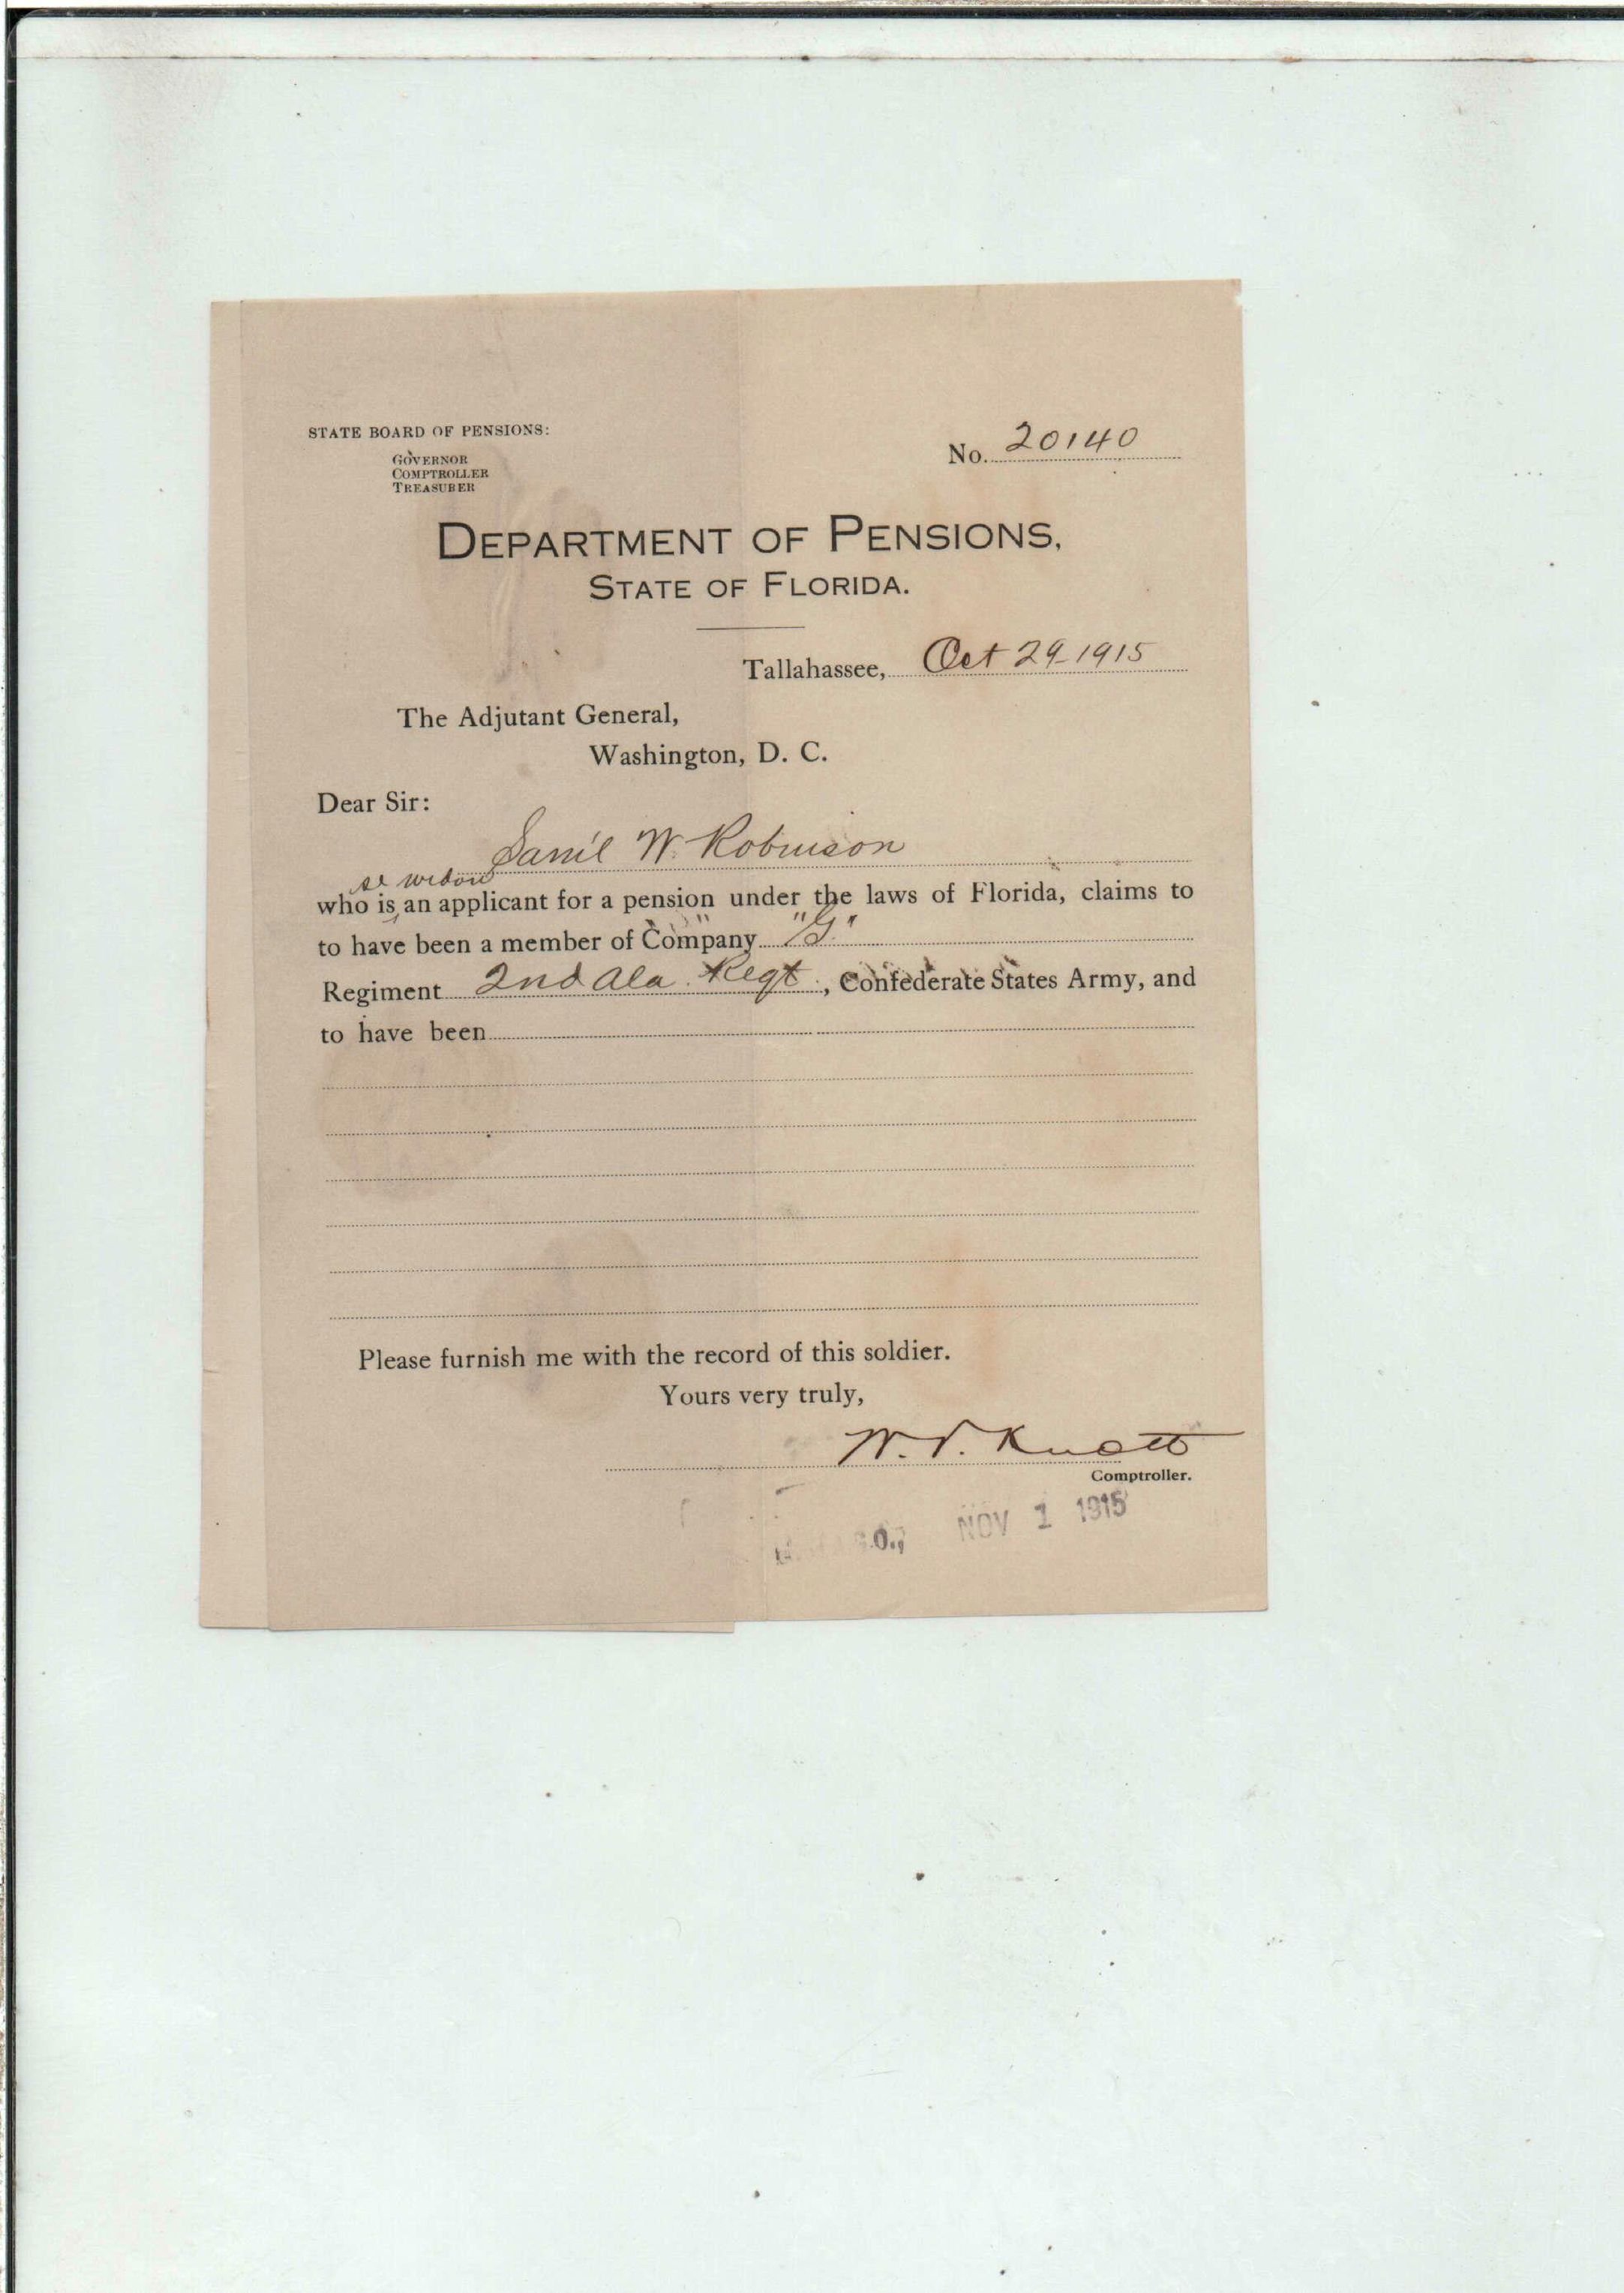 STATE BOARD OF PENSIONS:
GOVERNOR
COMPTROLLER
TREASURER
No. 20140
DEPARTMENT OF PENSIONS,
STATE OF FLORIDA.
Tallahassee, Oct 29-1915
The Adjutant General,
Washington, D. C.
Dear Sir:
Sam'l W. Robinson
se widow
who is an applicant for a pension under the laws of Florida, claims to
to have been a member of Company "G"
Regiment 2nd Ala. Regt., Confederate States Army, and
to have been
Please furnish me with the record of this soldier.
Yours very truly,
W. V. Knott
Comptroller.
NOV 1 1915